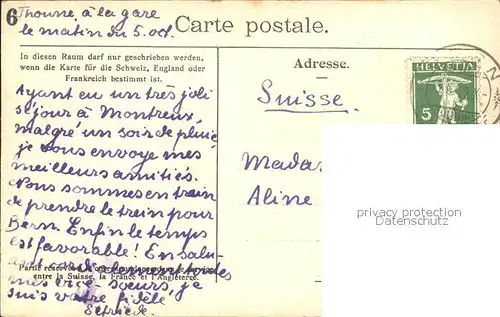 6
Thoune, à la gare
le matin du 5. oct.
Carte postale.
In diesen Raum darf nur geschrieben werden,
wenn die Karte für die Schweiz, England oder
Frankreich bestimmt ist.
Adresse.
HELVETIA
5
Suisse
Ayant eu un très joli
séjour à Montreux,
malgré un soir de pluie
je vous envoye mes
meilleurs amitiés.
Nous sommes en train
de prendre le train pour
Bern. Enfin le temps
est favorable! En salu-
ant cordialement toutes
Partie réservée à la correspondance
entre la Suisse, la France et l'Angleterre.
mes vice-soeurs, je
suis votre fidèle
Mada
Aline
privacy protection
Datenschutz